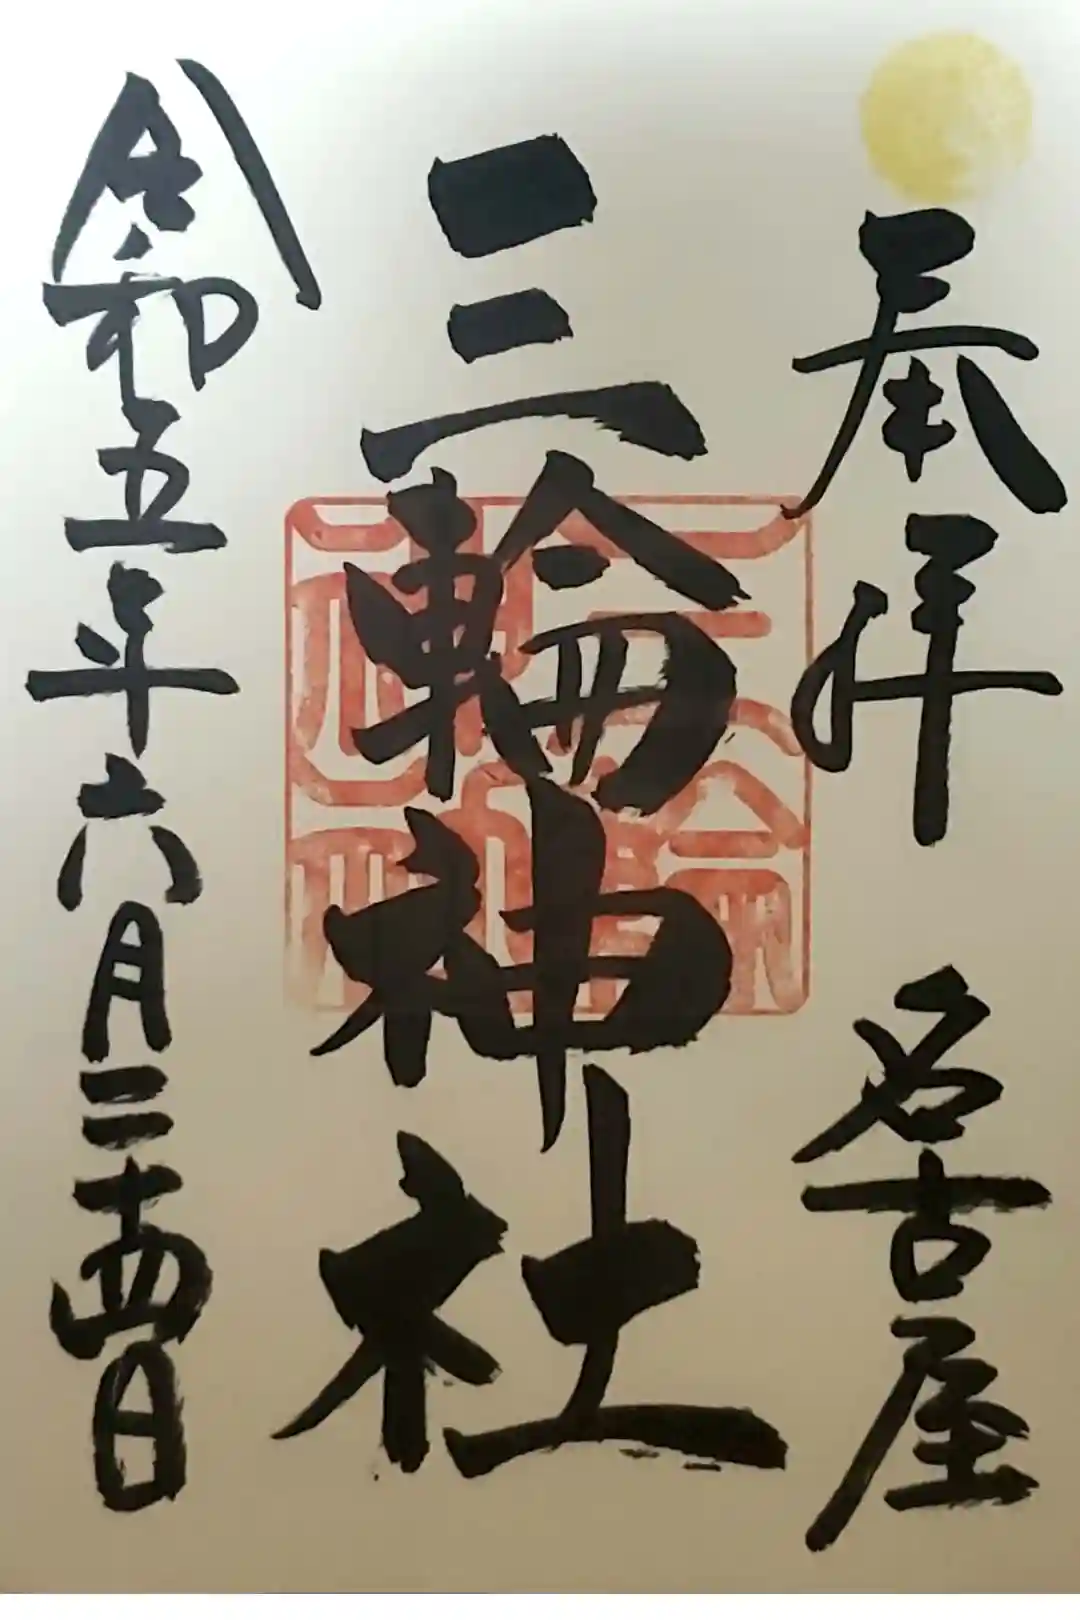 奉拝　名古屋
三輪神社
令和五年六月二十四日
三輪神社